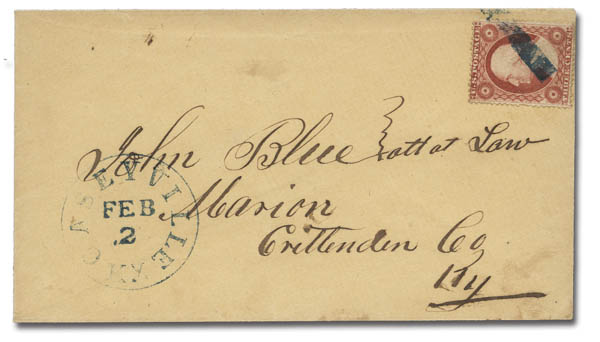 U.S. POSTAGE
THREE CENTS
John Blue att at Law
Marion
Crittenden Co
Ky
CASEYVILLE KY
FEB
2